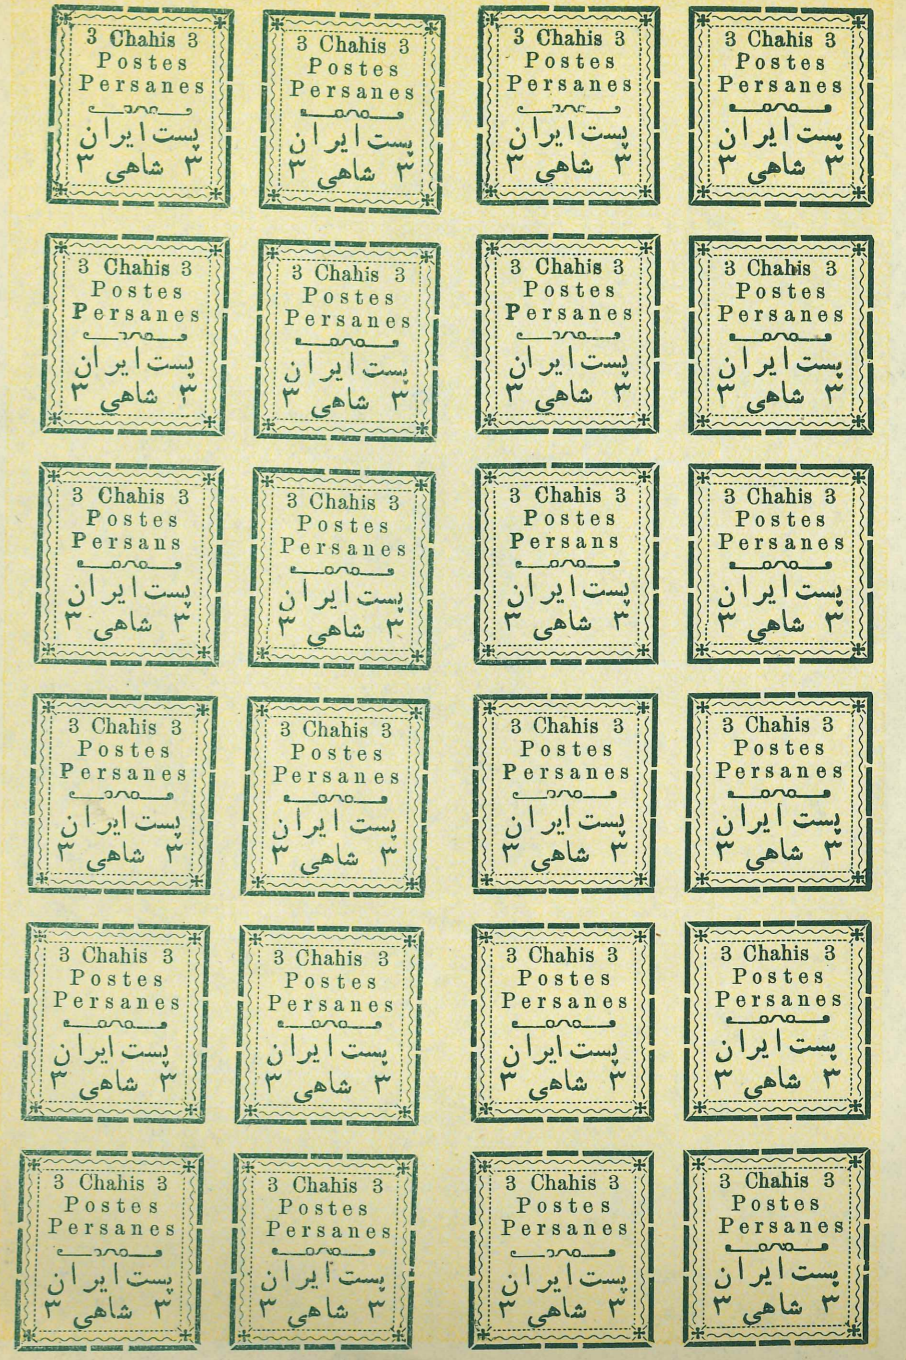 3 Chahis 3
Postes
Persanes
پست ایران
۳ شاهی ۳
3 Chahis 3
Postes
Persanes
پست ایران
۳ شاهی ۳
3 Chahis 3
Postes
Persanes
پست ایران
۳ شاهی ۳
3 Chahis 3
Postes
Persanes
پست ایران
۳ شاهی ۳
3 Chahis 3
Postes
Persanes
پست ایران
۳ شاهی ۳
3 Chahis 3
Postes
Persanes
پست ایران
۳ شاهی ۳
3 Chahis 3
Postes
Persanes
پست ایران
۳ شاهی ۳
3 Chahis 3
Postes
Persanes
پست ایران
۳ شاهی ۳
3 Chahis 3
Postes
Persans
پست ایران
۳ شاهی ۳
3 Chahis 3
Postes
Persanes
پست ایران
۳ شاهی ۳
3 Chahis 3
Postes
Persans
پست ایران
۳ شاهی ۳
3 Chahis 3
Postes
Persanes
پست ایران
۳ شاهی ۳
3 Chahis 3
Postes
Persanes
پست ایران
۳ شاهی ۳
3 Chahis 3
Postes
Persanes
پست ایران
۳ شاهی ۳
3 Chahis 3
Postes
Persanes
پست ایران
۳ شاهی ۳
3 Chahis 3
Postes
Persanes
پست ایران
۳ شاهی ۳
3 Chahis 3
Postes
Persanes
پست ایران
۳ شاهی ۳
3 Chahis 3
Postes
Persanes
پست ایران
۳ شاهی ۳
3 Chahis 3
Postes
Persanes
پست ایران
۳ شاهی ۳
3 Chahis 3
Postes
Persanes
پست ایران
۳ شاهی ۳
3 Chahis 3
Postes
Persanes
پست ایران
۳ شاهی ۳
3 Chahis 3
Postes
Persanes
پست ایران
۳ شاهی ۳
3 Chahis 3
Postes
Persanes
پست ایران
۳ شاهی ۳
3 Chahis 3
Postes
Persanes
پست ایران
۳ شاهی ۳